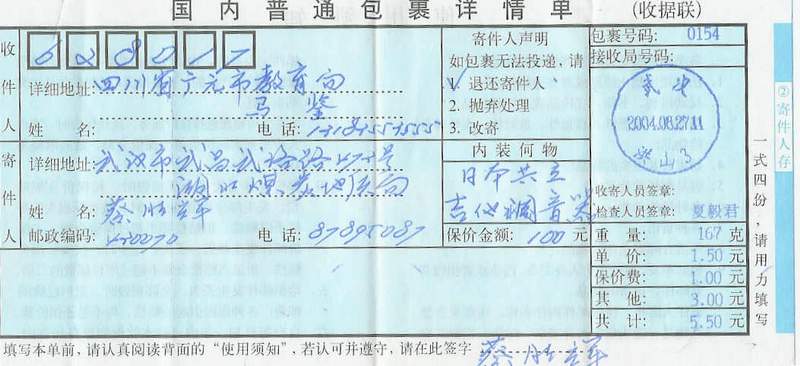 国内普通包裹详情单 (收据联)
收件人
628017
详细地址:四川省广元市教育局
马鉴
姓 名: 电 话:
寄件人
详细地址:武汉市武昌武珞路
姓 名:蔡胜祥
邮政编码:430070 电 话:87895087
寄件人声明
如包裹无法投递,请
1. 退还寄件人 √
2. 抛弃处理
3. 改寄
内 装 何 物
日本共立
吉他调音器
保价金额: 100 元
包裹号码: 0154
接收局号码:
武昌
2004.08.27.11
洪山
收寄人员签章:
检查人员签章: 夏毅君
重 量: 167 克
单 价: 1.50 元
保价费: 1.00 元
其 他: 3.00 元
共 计: 5.50 元
②寄件人存
一式四份,请用力填写
填写本单前,请认真阅读背面的“使用须知”,若认可并遵守,请在此签字 蔡胜祥